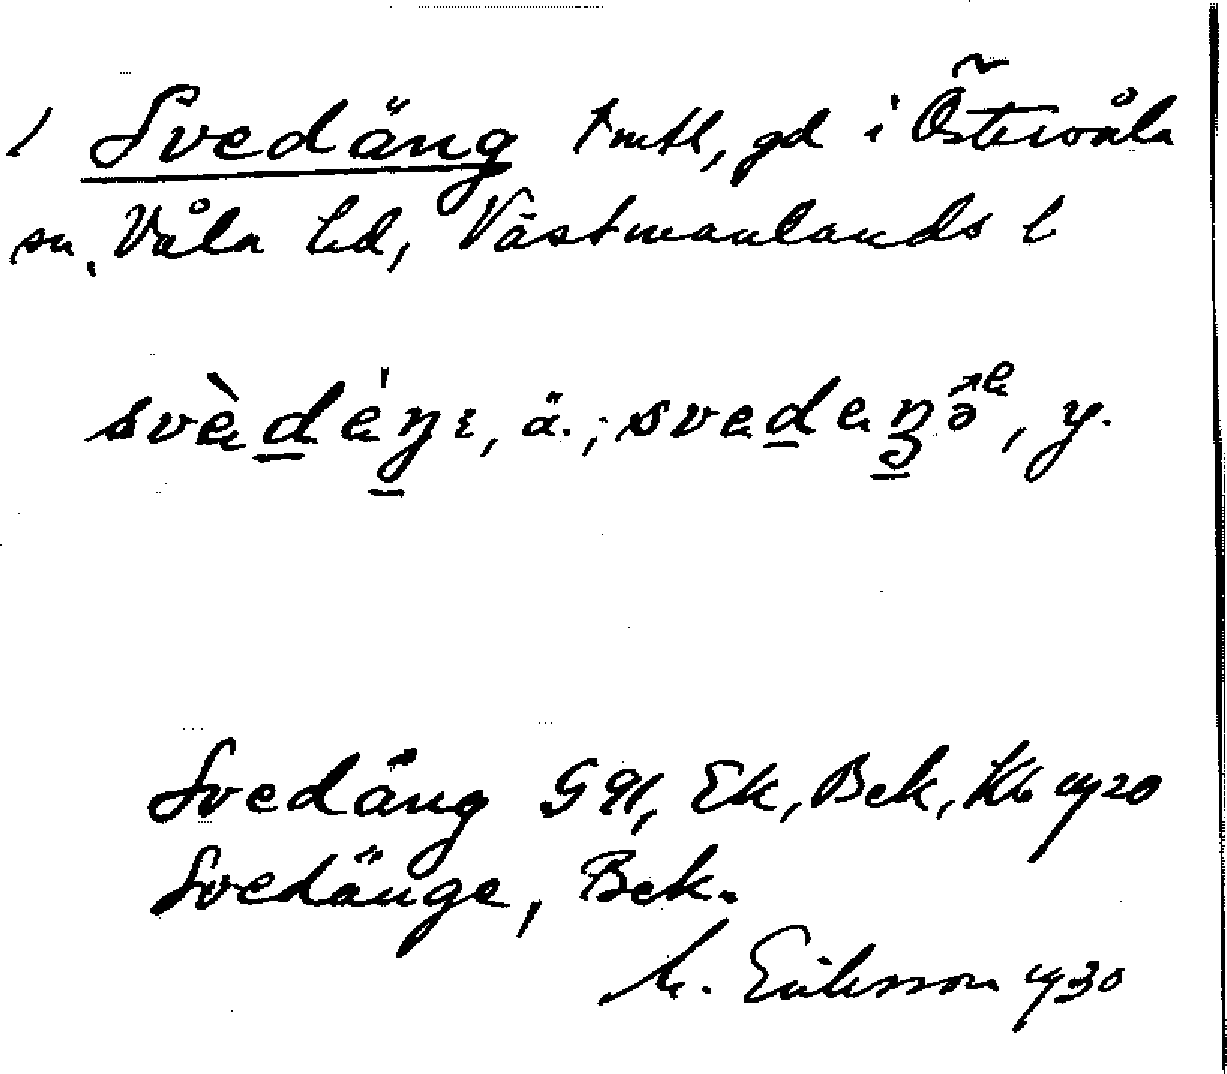 1 Svedäng tmtl, gd i Östervåla
sn, Våla hd, Västmanlands l
svèdéŋɩ, ä.; svedeŋə̂, y.
Svedäng G 91, Ek, Bek, Kb 1920
Svedänge, Bek.
M. Eriksson 1930